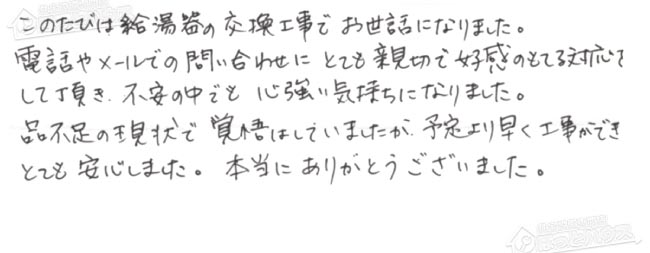 このたびは給湯器の交換工事でお世話になりました。
電話やメールでの問い合わせにとても親切で好感のもてる対応を
して頂き、不安の中でも心強い気持ちになりました。
品不足の現状で覚悟はしていましたが、予定より早く工事ができ
とても安心しました。本当にありがとうございました。